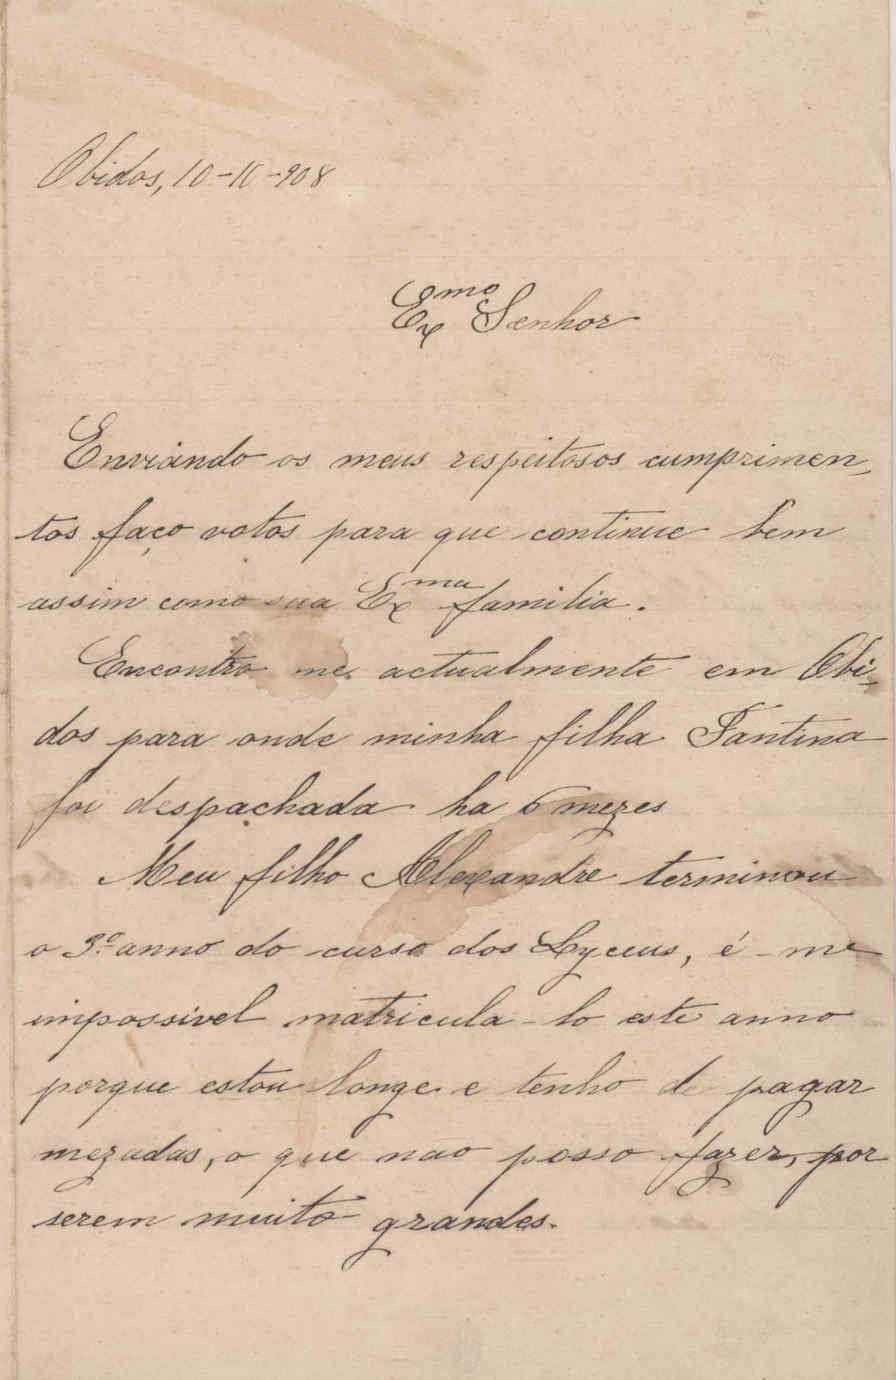 Obidos, 10-10-908
Exmo Senhor
Enviando os meus respeitosos cumprimen-
tos faço votos para que continue bem
assim como sua Exma familia.
Encontro me actualmente em Obi-
dos para onde minha filha Fantina
foi despachada ha 6 mezes
Meu filho Alexandre terminou
o 3º anno do curso dos Lyceus, é-me
impossivel matricula-lo este anno
porque estou longe e tenho de pagar
mezadas, o que nao posso fazer, por
serem muito grandes.